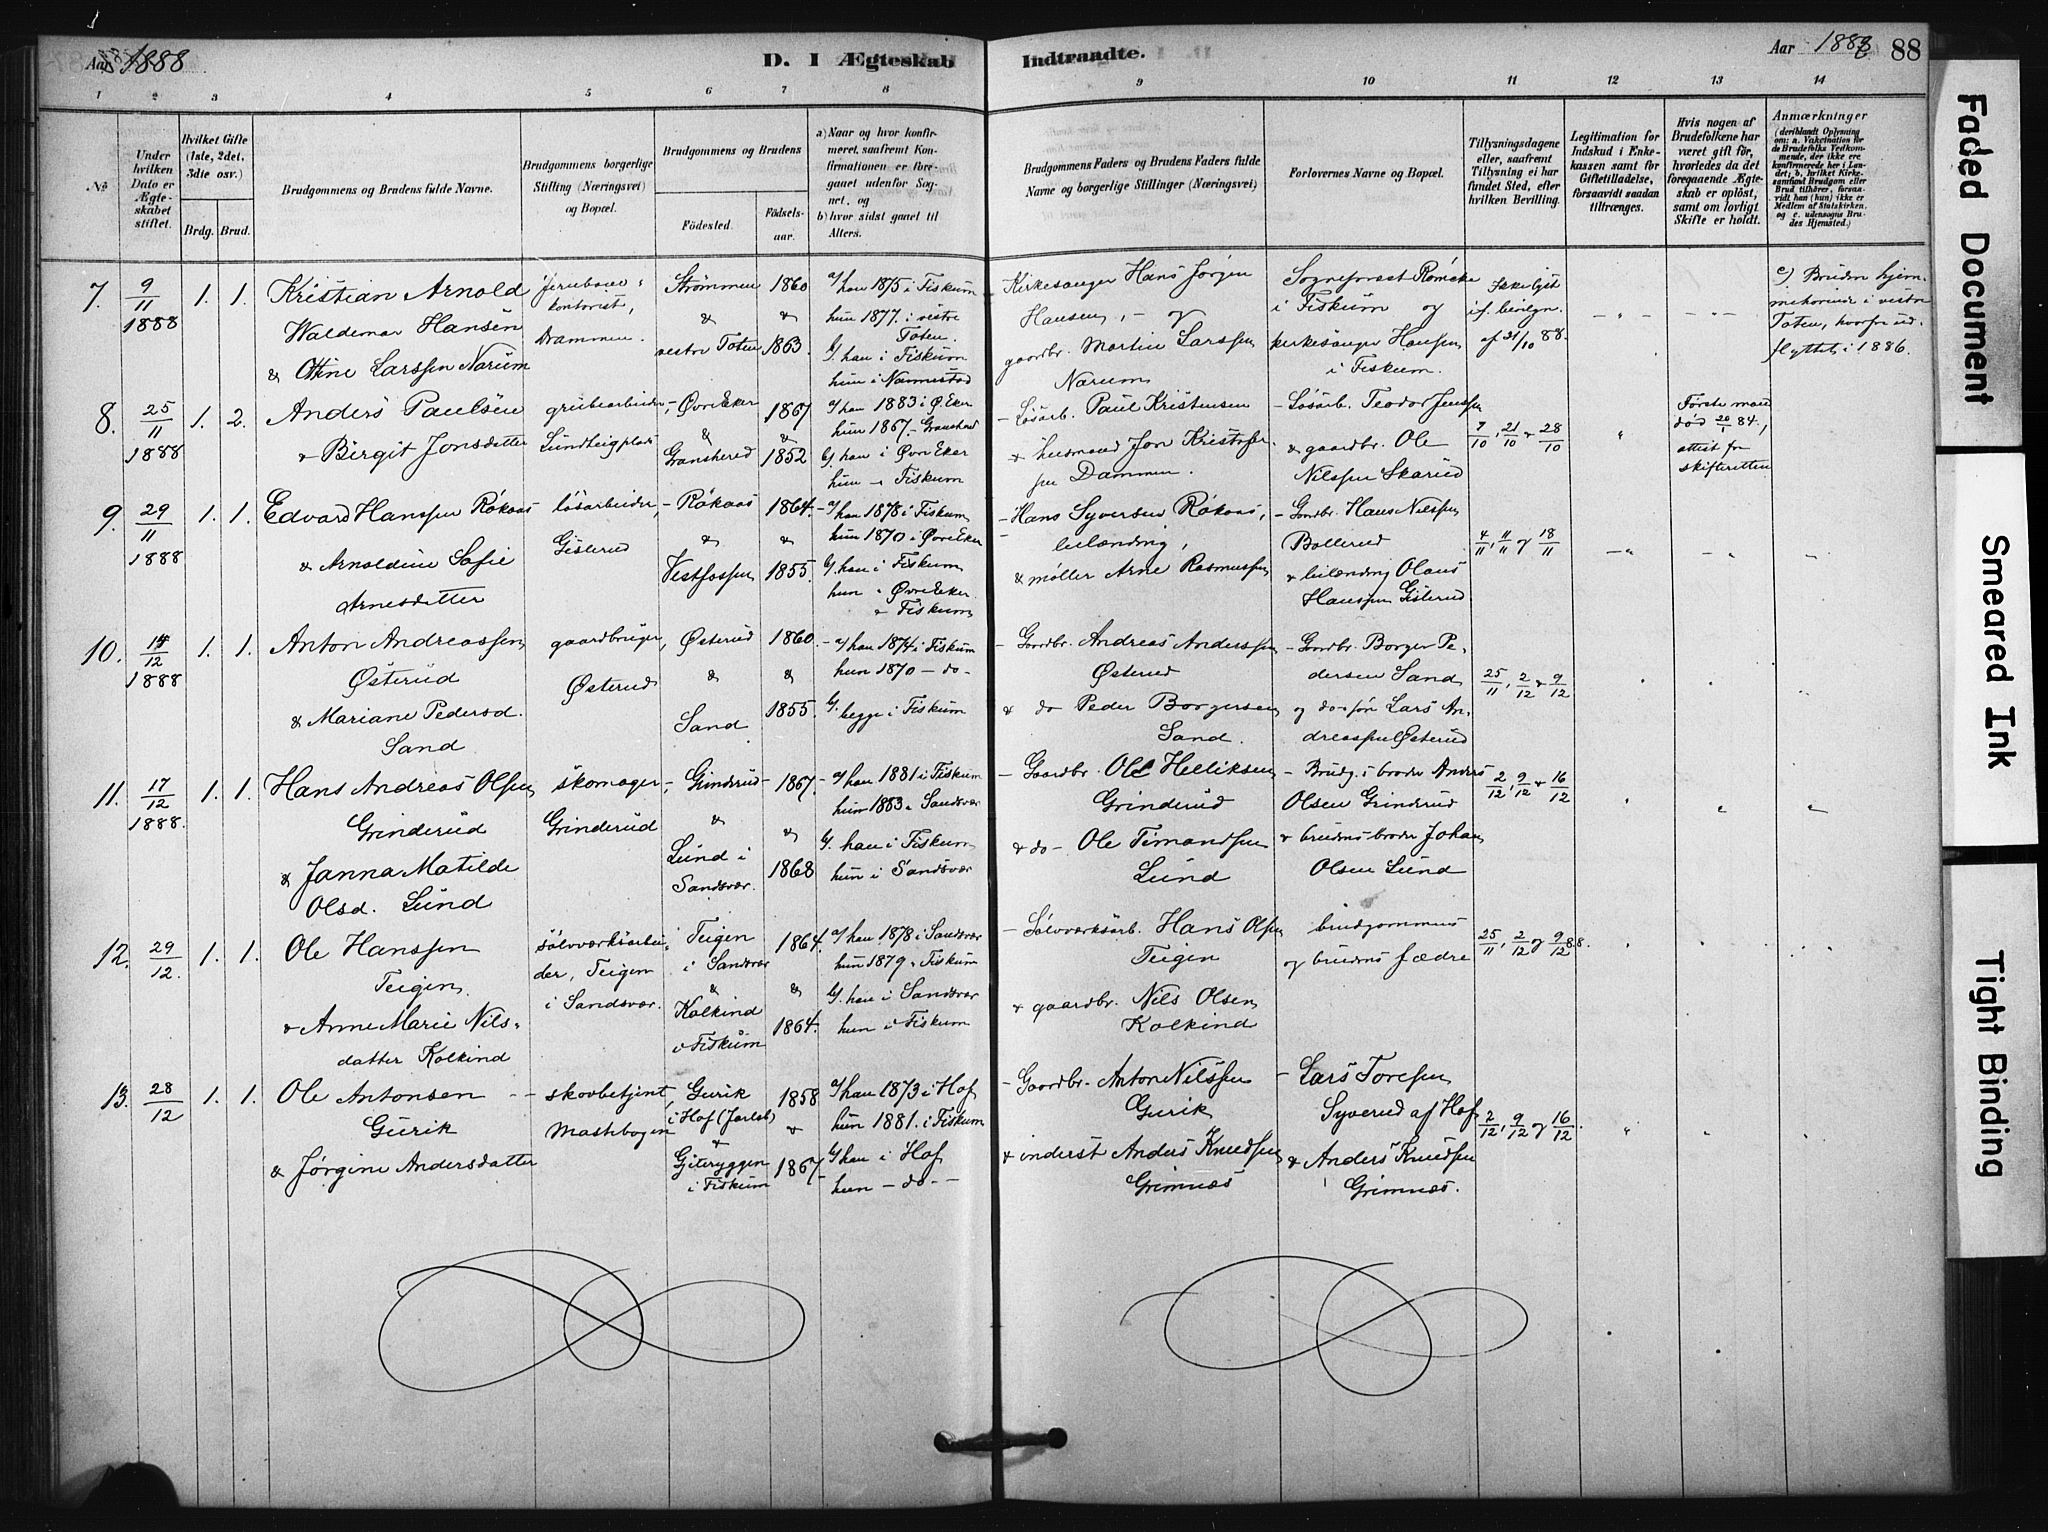 Aar 1888
D. I Ægteskab Indtraadte.
Aar 1888
88
1 2 3 4 5 6 7 8 9 10 11 12 13 14
No
Under hvilken Dato er Ægteskabet stiftet.
Hvilket Gifte (1ste, 2det, 3dte osv.)
Brdg. Brud.
Brudgommens og Brudens fulde Navne.
Brudgommens borgerlige Stilling (Næringsvei) og Bopæl.
Brudgommens og Brudens
Fødested.
Fødselsaar.
a) Naar og hvor konfirmeret, saafremt Konfirmationen er foregaaet udenfor Sognet, og
b) hvor sidst gaaet til Alters.
Brudgommens Faders og Brudens Faders fulde Navne og borgerlige Stillinger (Næringsvei)
Forlovernes Navne og Bopæl.
Tillysningsdagene eller, saafremt Tillysning ei har fundet Sted, efter hvilken Bevilling.
Legitimation for Indskud i Enkekassen samt for Giftetilladelse, forsaavidt saadan tiltrænges.
Hvis nogen af Brudefolkene har været gift før, hvorledes da det foregaaende Ægteskab er opløst, samt om lovligt Skifte er holdt.
Anmærkninger
(deriblandt Oplysning om: a. Vakcination for de Brudefolks Vedkommende, der ikke ere konfirmerede her i Landet; b. hvilket Kirkesamfund Brudgom eller Brud tilhører, forsaavidt han (hun) ikke er Medlem af Statskirken, og c. udensogns Brudes Hjemsted.)
7. 9/11 1888 1. 1.
Kristian Arnold
Waldemar Hansen
& Ottine Larssen Narum
Jernbane-
kontorist,
Drammen.
Strømmen
&
vestre Toten
1860
&
1863.
a/ han 1875 i Fiskum
hun 1877. i vestre
Toten.
b. han i Fiskum
hun i Nannestad
Kirkesanger Hans Jørgen
Hansen, - og
gaardbr. Martin Larssen
Narum
Sogneprest Rømcke
i Fiskum og
kirkesanger Hansen
i Fiskum.
Ikke lyst
if. bevilgn.
af 31/10 88.
c) Bruden hjem-
mehørende i vestre
Toten, hvorfra ud-
flyttet i 1886.
8. 25/11 1888 1. 2.
Anders Paulsen
& Birgit Jonsdatter
grubearbeider,
Sundheigplads
Øvre Eker
&
Gransherred
1867
&
1852
a/ han 1883 i Ø. Eker
hun 1867 - Gransherred
b. han i Øvre Eker
hun - Fiskum
- Løsarb. Paul Kristensen
& husmand Jon Kristofer-
sen Dammen.
- Løsarb. Teodor Jenssen
& gaardbr. Ole
Nilssen Skarud
7/10, 21/10 & 28/10
Første mand
død 20/1 84,
attest fra
skifteretten
9. 29/11 1888 1. 1.
Edvard Hanssen Røkaas
& Arnoldine Sofie
Arnesdatter
løsarbeider,
Gislerud
- Røkaas
&
Vestfossen
1864.
&
1855.
- a/ han 1878 i Fiskum
hun 1870 i Øvre Eker
b. han i Fiskum
hun i Øvre Eker
& Fiskum
- Hans Syversen Røkaas,
leilænding,
& møller Arne Rasmussen
- Gaardbr. Hans Nilssen
Bollerud
& leilænding Olaus
Hanssen Gislerud
4/11, 11/11 og 18/11
10. 14/12 1888 1. 1.
Anton Andreassen
Østerud
& Mariane Pedersd.
Sand
gaardbruger,
Østerud
Østerud
&
Sand
1860
&
1855.
- a/ han 1874 i Fiskum
hun 1870 - do -
b. begge i Fiskum
- Gaardbr. Andreas Anderssen
Østerud
& do Peder Borgersen
Sand.
- Gaardbr. Borger Pe-
dersen Sand
og do-søn Lars An-
dreassen Østerud
25/11, 2/12 & 9/12
11. 17/12 1888. 1. 1.
Hans Andreas Olsen
Grinderud
& Janna Matilde
Olsd. Lund
skomager,
Grinderud
- Grinderud
&
Lund i
Sandsvær.
1867.
&
1868
- a/ han 1881 i Fiskum
hun 1883 i Sandsvær
b. han i Fiskum
hun i Sandsvær
- Gaardbr. Ole Helliksen
Grinderud
& do - Ole Timandsen
Lund
- Brudg.s broder Anders
Olsen Grinderud
& brudens broder Johan
Olsen Lund
2/12, 9/12 & 16/12
12. 29/12. 1. 1.
Ole Hanssen
Teigen
& Anne Marie Nils-
datter Kolkind
sølvværksarbei-
der, Teigen
i Sandsvær.
Teigen
i Sandsvær
&
Kolkind
i Fiskum
1864.
&
1864.
a/ han 1878 i Sandsvær
hun 1879 i Fiskum
b/ han i Sandsvær
hun i Fiskum
- Sølvværksarb. Hans Olsen
Teigen
& gaardbr. Nils Olsen
Kolkind
brudgommens
og brudens fædre
25/11, 2/12 og 9/12 88.
13. 28/12 1. 1.
Ole Antonsen
Gurik
& Jørgine Andersdatter
skovbetjent,
Mastebogen
Gurik
i Hof (Jarlsb)
&
Gjiteryggen
i Fiskum
1858
&
1867
a/ han 1873 i Hof
hun 1881. i Fiskum
b/ han i Hof
hun - do. -
- Gaardbr. Anton Nilssen
Gurik
& inderst Anders Knudsen
Grimnæs
- Lars Toresen
Syverud af Hof
& Anders Knudsen
Grimnæs.
2/12, 9/12 og 16/12
Faded Document
Smeared Ink
Tight Binding